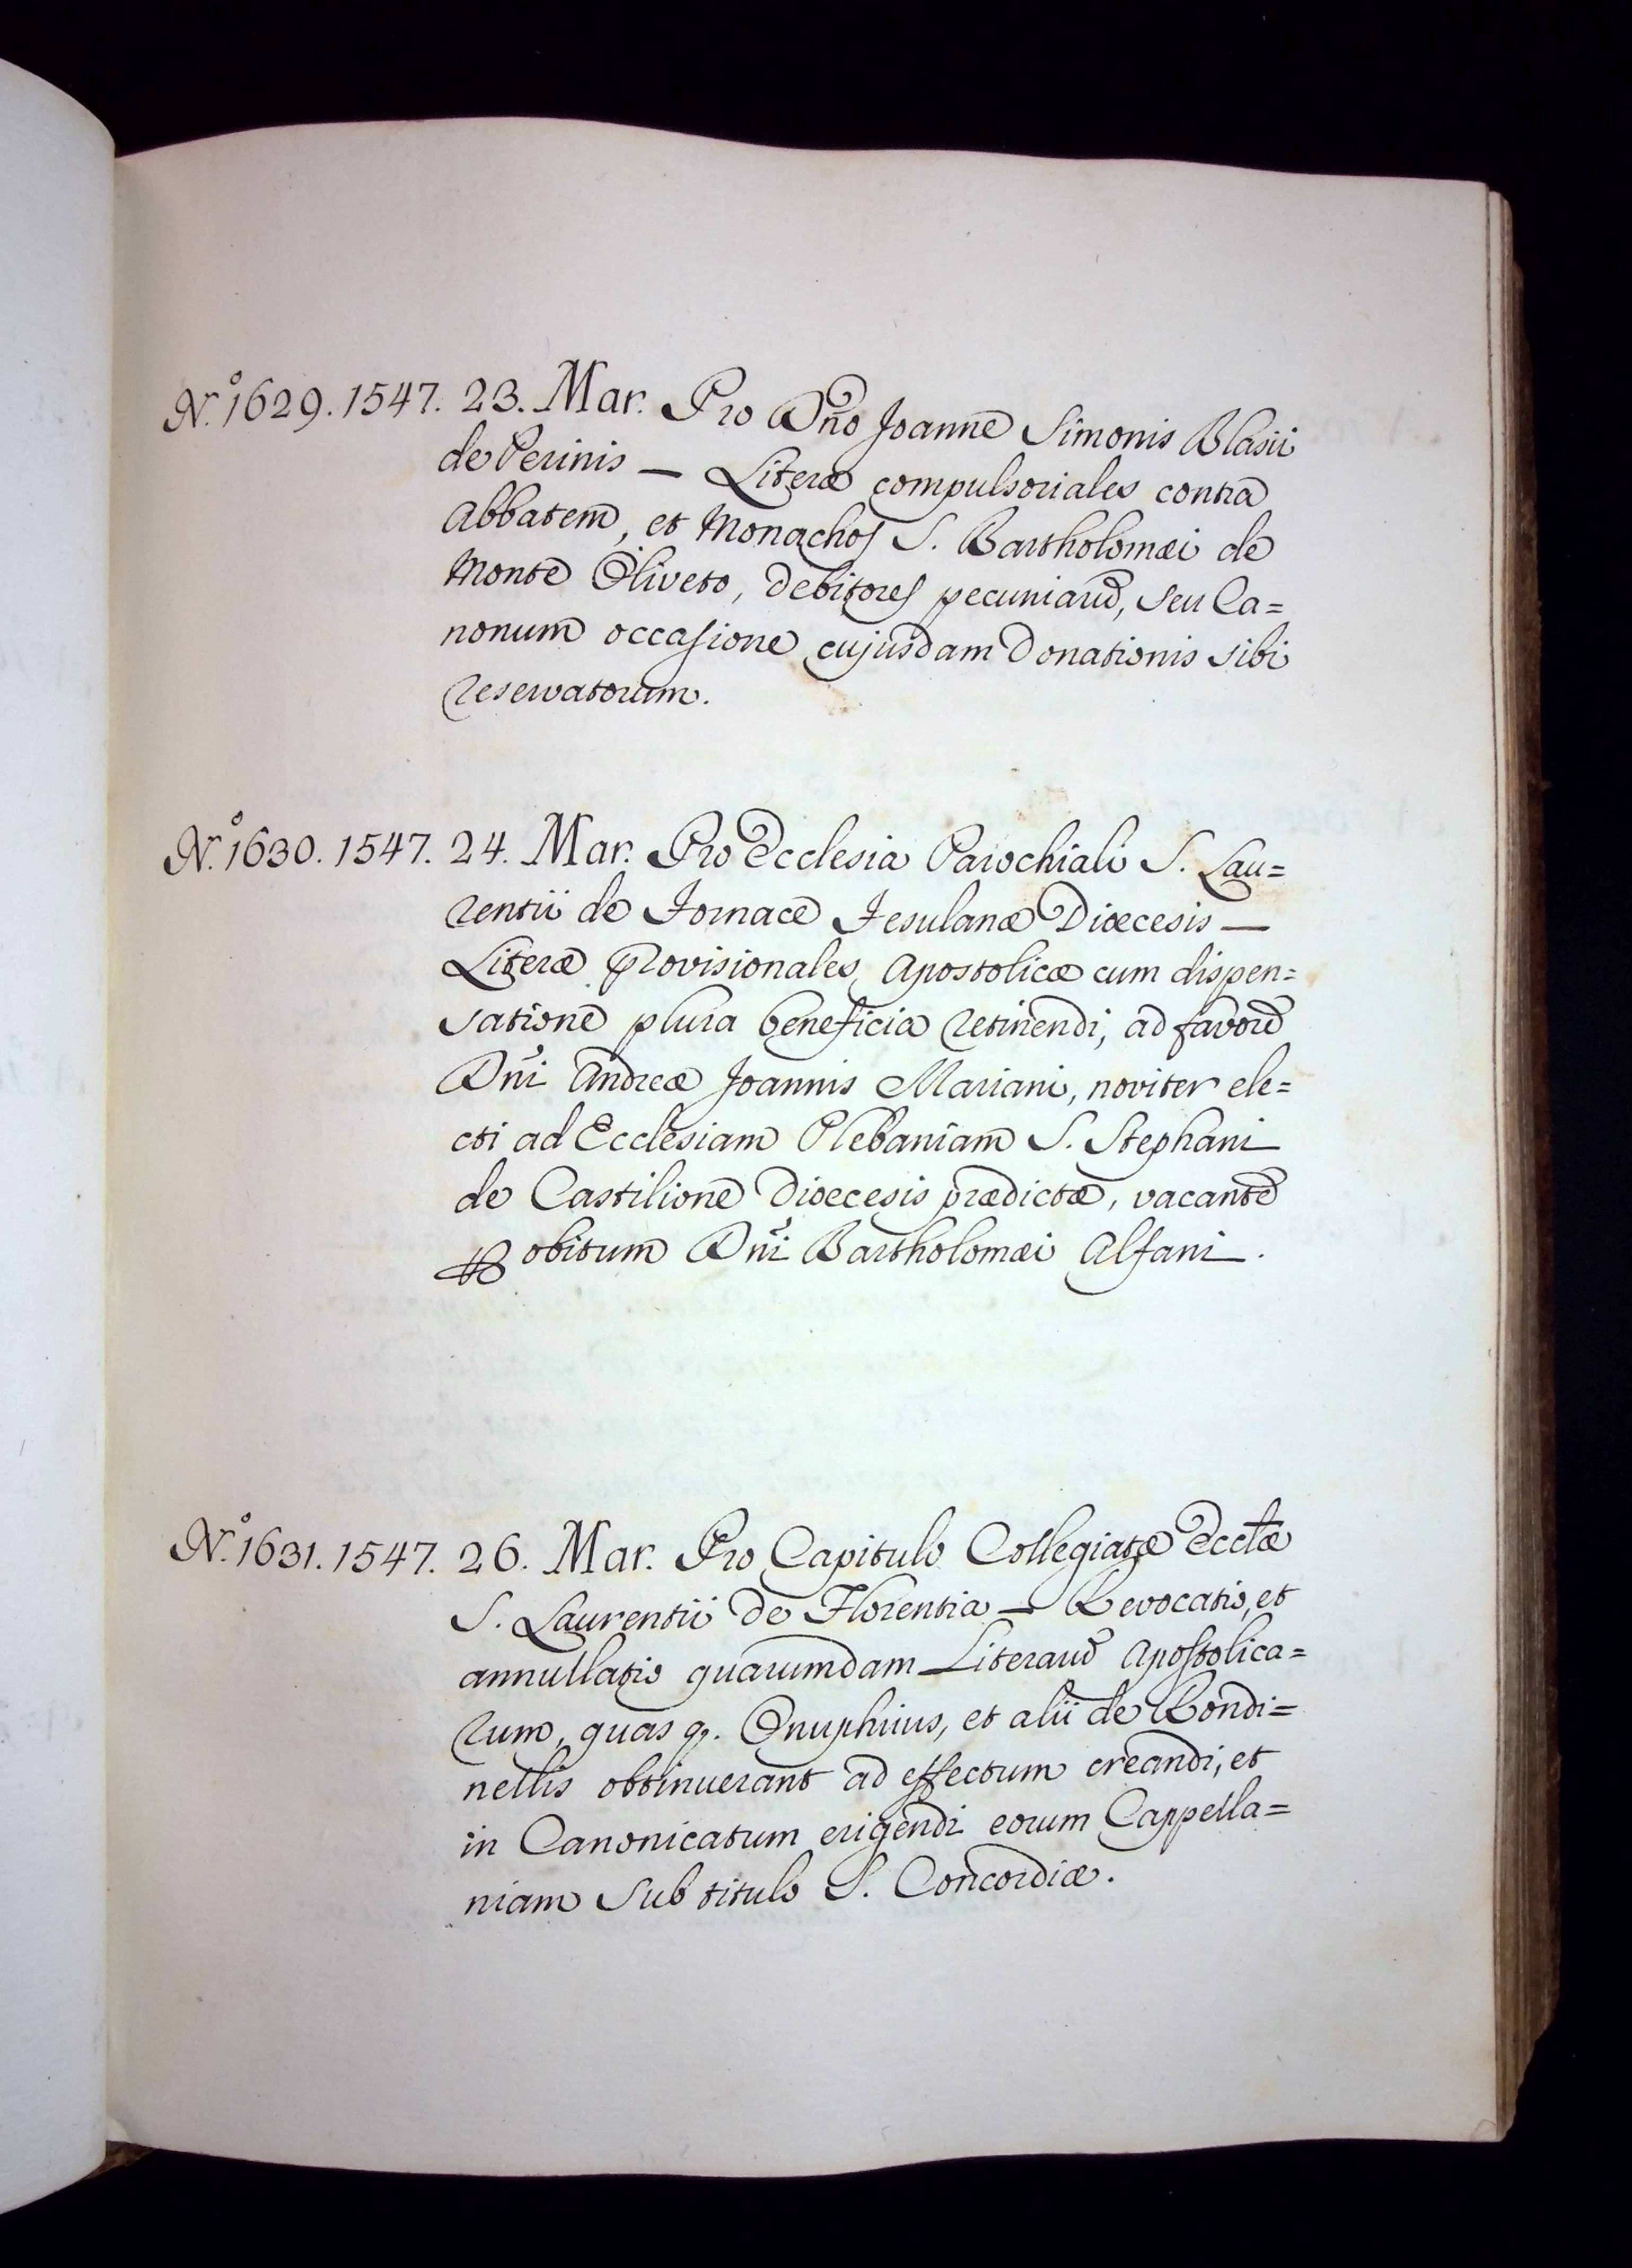 N.º 1629. 1547. 23. Mar. Pro Dño Joanne Simonis Blasii
de Perinis — Literæ compulsoriales contra
Abbatem, et Monachos S. Bartholomæi de
Monte Oliveto, debitores pecuniarũ, seu Ca=
nonum occasione cujusdam Donationis sibi
reservatorum.
N.º 1630. 1547. 24. Mar. Pro Ecclesia Parochiali S. Lau=
rentii de Fornace Fesulanæ Diœcesis —
Literæ Provisionales Apostolicæ cum dispen=
satione plura beneficia retinendi, ad favorẽ
Dñi Andreæ Joannis Mariani, noviter ele=
cti ad Ecclesiam Plebaniam S. Stephani
de Castilione Diœcesis prædictæ, vacantẽ
per obitum Dñi Bartholomæi Alfani.
N.º 1631. 1547. 26. Mar. Pro Capitulo Collegiatæ Ecctæ
S. Laurentii de Florentia — Revocatio, et
annullatio quarumdam Literarũ Apostolica=
rum, quas q. Onuphrius, et alii de Rondi=
nellis obtinuerant ad effectum creandi, et
in Canonicatum erigendi eorum Cappella=
niam sub titulo S. Concordiæ.